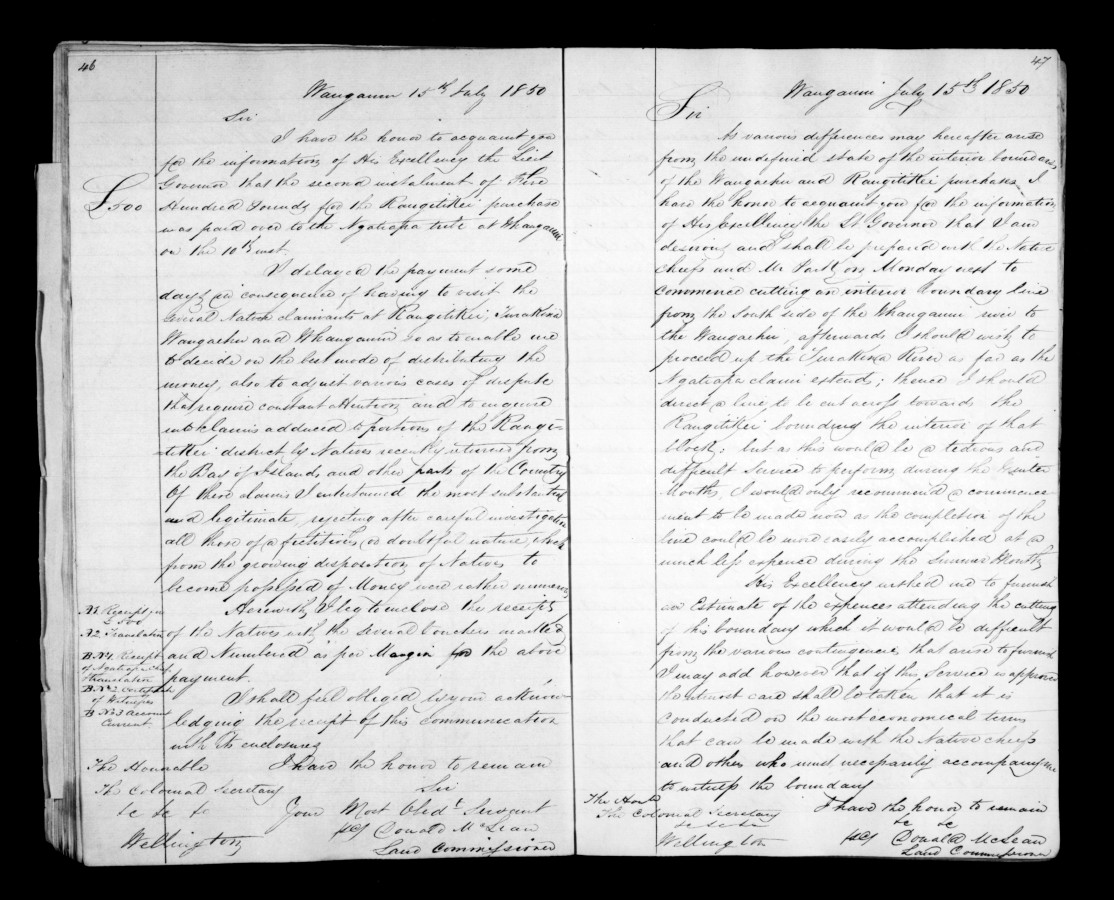 46
Wanganui 15th July 1850
Sir
I have the honor to acquaint you
for the information of His Excellency the Lieut
Governor that the second instalment of Five
£500
Hundred Pounds for the Rangitikei purchase
was paid over to the Ngatiapa tribe at Whanganui
on the 10th inst.
I delayed the payment some
days in consequence of having to visit the
several Native claimants at Rangitikei, Turakina
Wangaehu and Whanganui so as to enable me
to decide on the best mode of distributing the
money, also to adjust various cases of dispute
that require constant attention and to enquire
into claims adduced to portions of the Rangi-
tikei district by Natives recently returned from
the Bay of Islands and other parts of the Country
Of these claims I entertained the most substantial
and legitimate, rejecting after careful investigation
all those of a fictitious or doubtful nature, which
from the growing disposition of Natives to
become possessed of Money were rather numerous
Herewith I beg to enclose the receipts
of the Natives with the several vouchers marked
and Numbered as per Margin for the above
payment.
A1 Receipt for
£500
A2 Translation
B No 1 Receipt
of Ngatiapa Chief
translation
B No 2 Certificate
of Witnesses
B No 3 Account
Current.
I shall feel obliged by your acknow-
ledging the receipt of this communication
with its enclosures
I have the honor to remain
Sir
Your Most Obedt Servant
Donald McLean
Land Commissioner
The Honorable
The Colonial Secretary
&c &c &c
Wellington
47
Wanganui July 15th 1850
Sir
As various differences may hereafter arise
from the undefined state of the interior boundary
of the Wangaehu and Rangitikei purchases I
have the honor to acquaint you for the information
of His Excellency the Lt. Governor that I am
desirous and shall be prepared with the Native
chiefs and Mr Park on Monday next to
commence cutting an interior boundary line
from the South side of the Whanganui river to
the Wangaehu, afterwards I should wish to
proceed up the Turakina River as far as the
Ngatiapa claims extend; thence I should
direct a line to be cut across towards the
Rangitikei bounding the interior of that
block; but as this would be a tedious and
difficult Service to perform during the Winter
Months, I would only recommend a commence-
ment to be made now as the completion of the
line could be more easily accomplished at a
much less expence during the Summer Months
His Excellency wished me to furnish
an Estimate of the expences attending the cutting
of this boundary which it would be difficult
from the various contingencies that arise to furnish
I may add however that if this Service is approved
the utmost care shall be taken that it is
conducted on the most economical terms
that can be made with the Native chiefs
and others who must necessarily accompany me
to witness the boundary
I have the honor to remain
&c &c
Donald McLean
Land Commissioner
The Honble
The Colonial Secretary
&c &c &c
Wellington